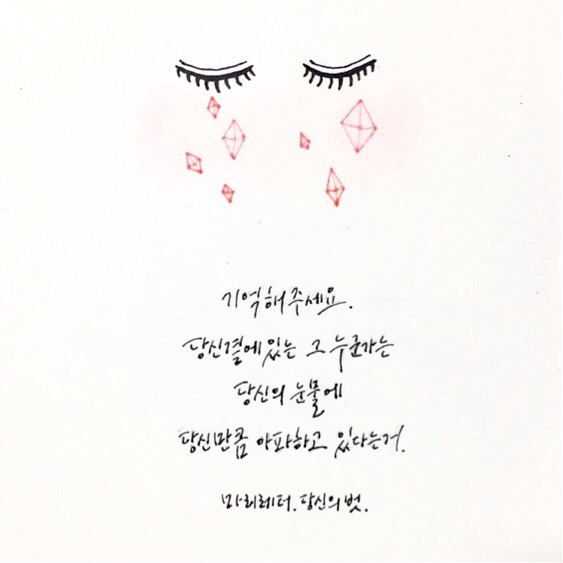 기억해주세요.
당신곁에있는 그 누군가는
당신의 눈물에
당신만큼 아파하고 있다는거.
마리레터. 당신의 벗.